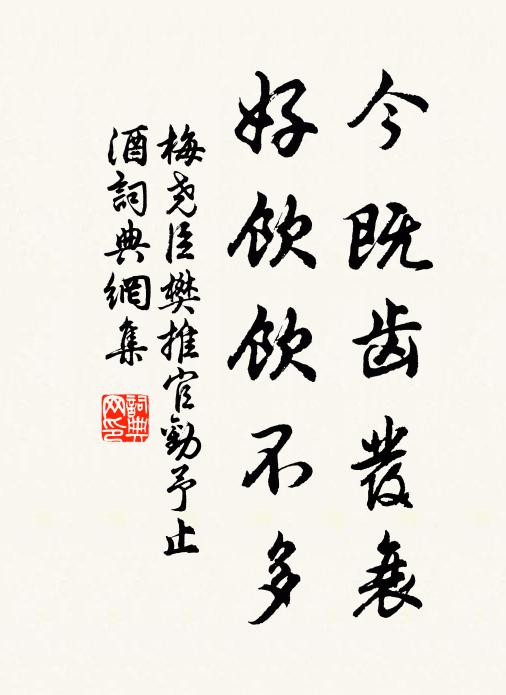 今既齿发衰
好饮饮不多
梅尧臣樊推官勸予止
酒詞典網集
詞典网印